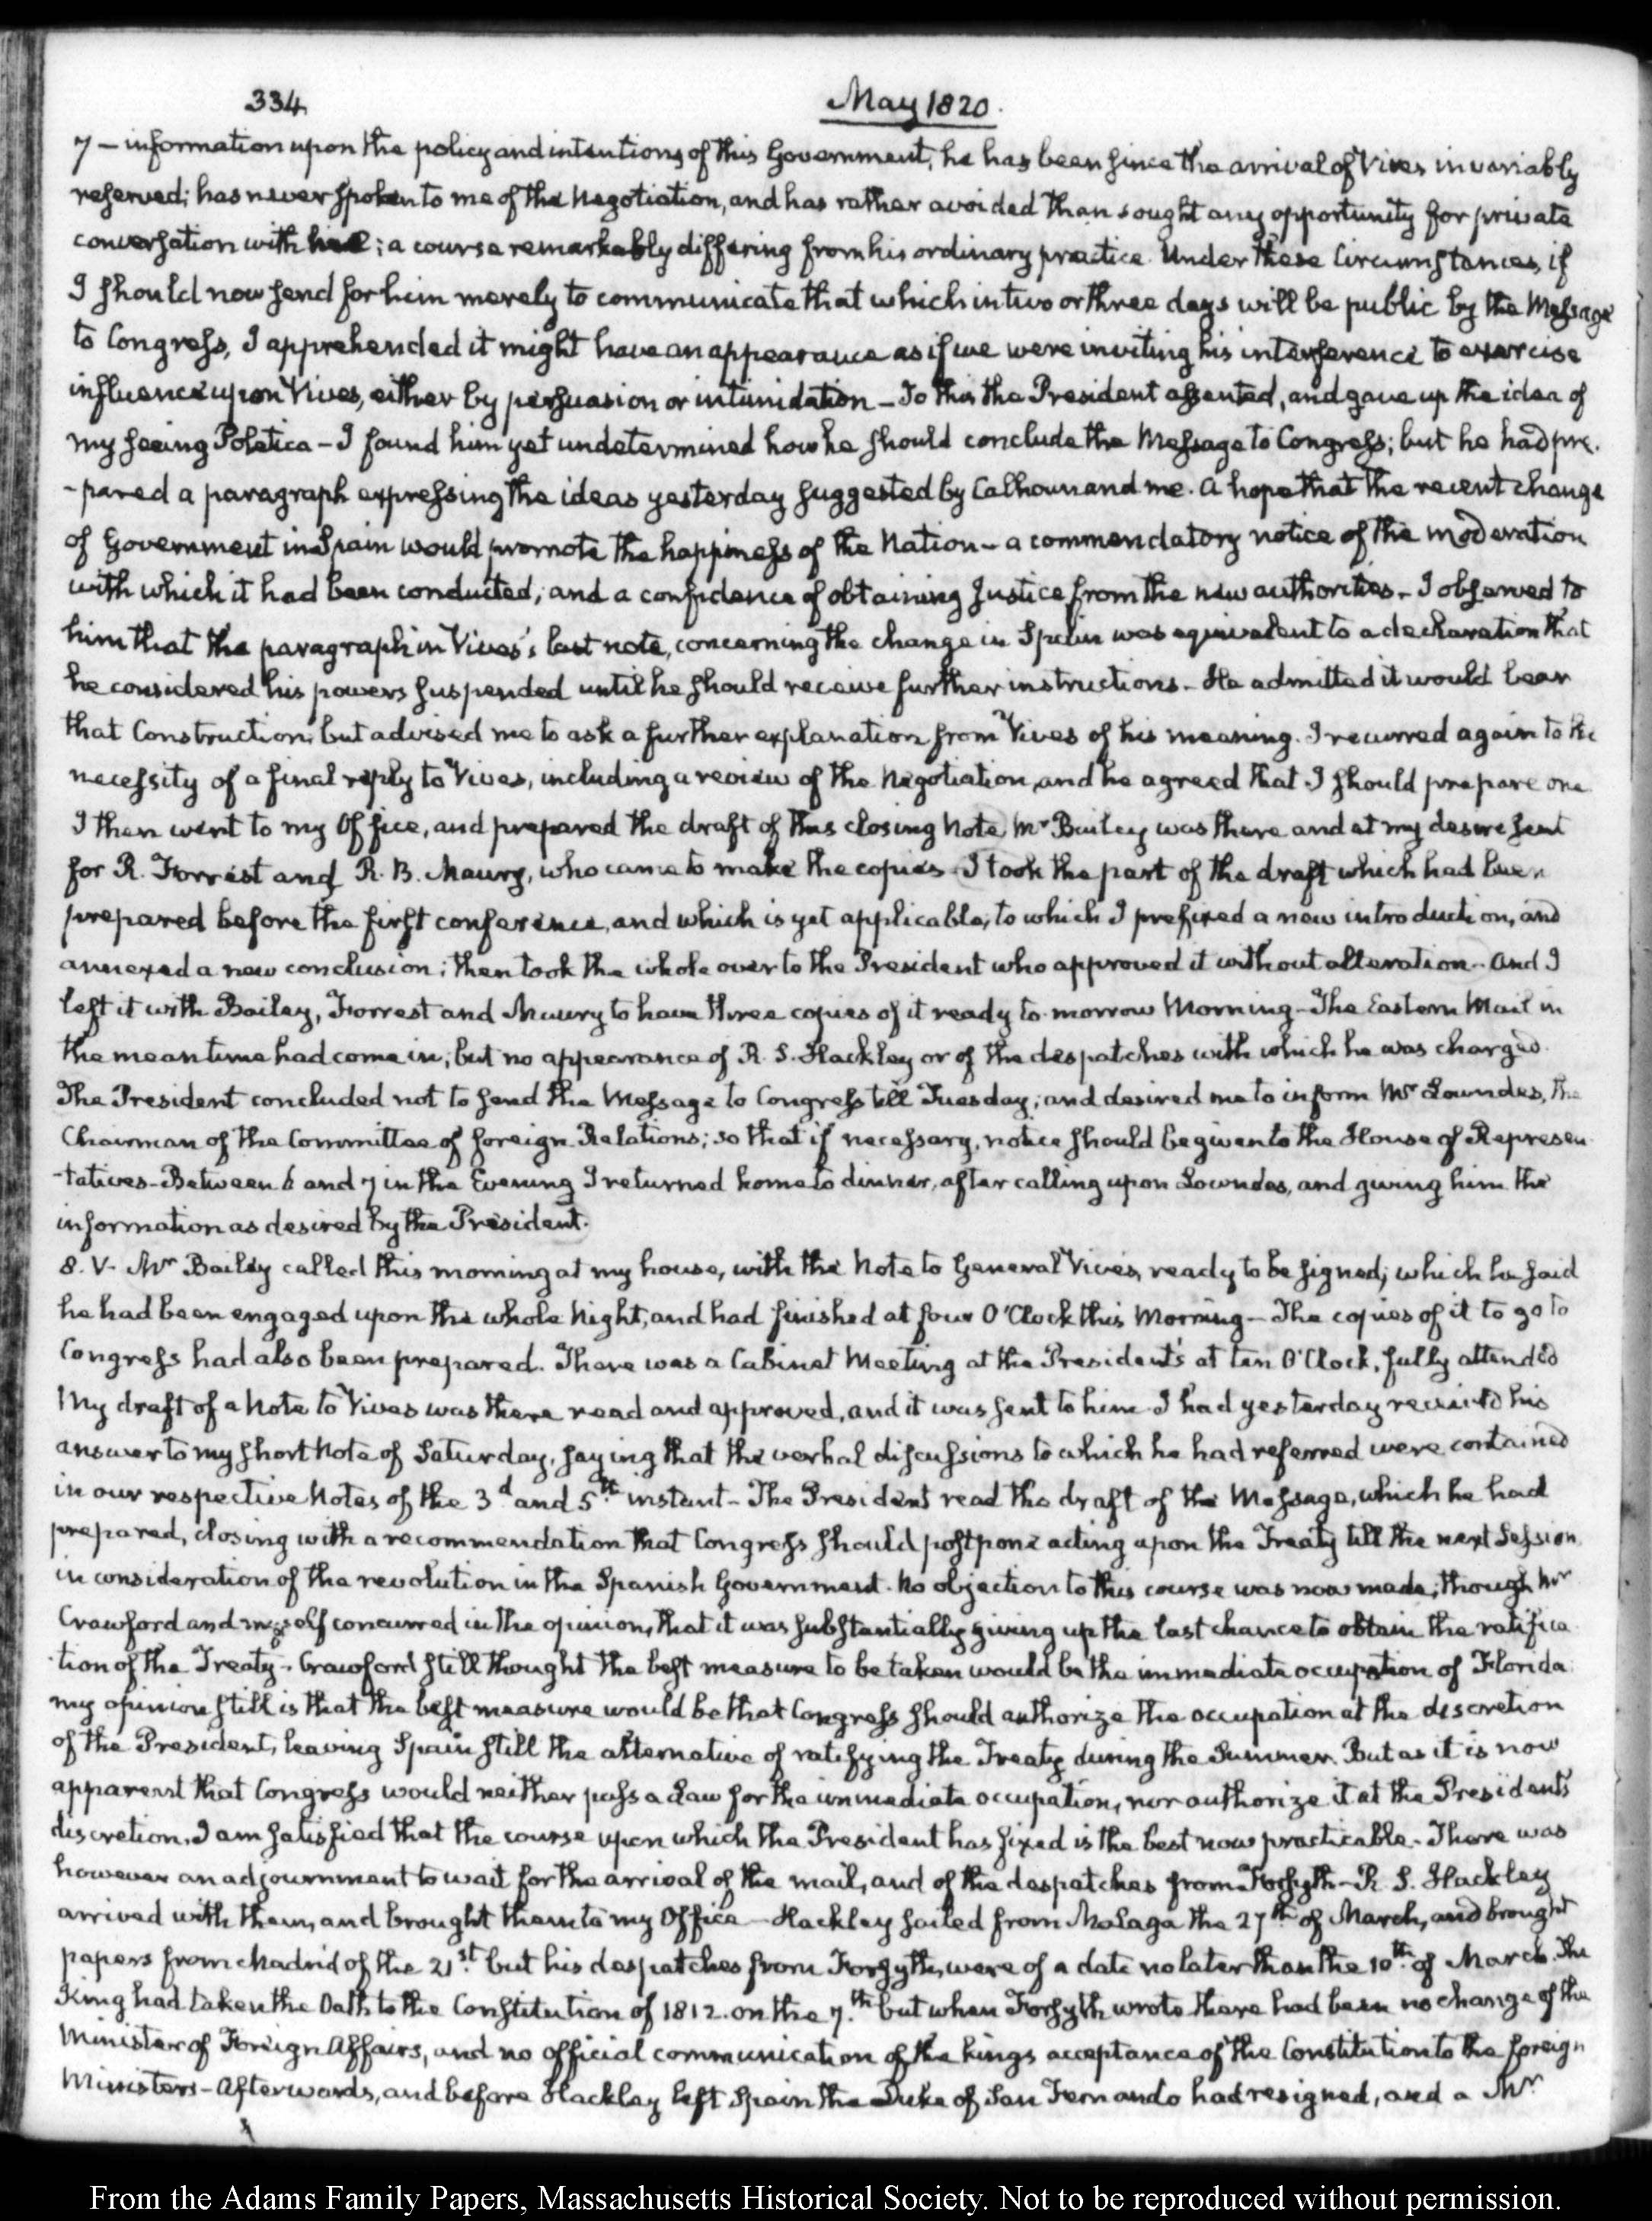 334 May 1820.
7 – information upon the policy and intentions of this Government, he has been since the arrival of Vives invariably
reserved; has never spoken to me of the Negotiation, and has rather avoided than sought any opportunity for private
conversation with me; a course remarkably differing from his ordinary practice. Under these Circumstances, if
I should now send for him merely to communicate that which in two or three days will be public by the Message
to Congress, I apprehended it might have an appearance as if we were inviting his interference to exercise
influence upon Vives, either by persuasion or intimidation – To this the President assented, and gave up the idea of
my seeing Poletica – I found him yet undetermined how he should conclude the Message to Congress; but he had pre-
-pared a paragraph expressing the ideas yesterday suggested by Calhoun and me. A hope that the recent change
of Government in Spain would promote the happiness of the Nation – a commendatory notice of the moderation
with which it had been conducted, and a confidence of obtaining Justice from the new authorities – I observed to
him that the paragraph in Vives's last note, concerning the change in Spain was equivalent to a declaration that
he considered his powers suspended until he should receive further instructions – He admitted it would bear
that Construction, but advised me to ask a further explanation from Vives of his meaning. I recurred again to the
necessity of a final reply to Vives, including a review of the Negotiation, and he agreed that I should prepare one
I then went to my Office, and prepared the draft of this closing Note Mr Bailey was there and at my desire sent
for R. Forrest and R. B. Maury, who came to make the copies – I took the part of the draft which had been
prepared before the first conference, and which is yet applicable, to which I prefixed a new introduction, and
annexed a new conclusion; then took the whole over to the President who approved it without alteration – And I
left it with Bailey, Forrest and Maury to have three copies of it ready to-morrow Morning – The Eastern Mail in
the meantime had come in; but no appearance of R. S. Hackley or of the despatches with which he was charged.
The President concluded not to send the Message to Congress till Tuesday; and desired me to inform Mr Lowndes, the
Chairman of the Committee of foreign Relations; so that if necessary, notice should be given to the House of Represen-
-tatives – Between 6 and 7 in the Evening I returned home to dinner, after calling upon Lowndes, and giving him the
information as desired by the President.
8. V– Mr Bailey called this morning at my house, with the Note to General Vives, ready to be signed; which he said
he had been engaged upon the whole Night, and had finished at four O'Clock this Morning – The copies of it to go to
Congress had also been prepared. There was a Cabinet Meeting at the President's at ten O'Clock, fully attended
My draft of a Note to Vives was there read and approved, and it was sent to him – I had yesterday received his
answer to my short Note of Saturday, saying that the verbal discussions to which he had referred were contained
in our respective Notes of the 3d and 5th instant – The President read the draft of the Message, which he had
prepared, closing with a recommendation that Congress should postpone acting upon the Treaty till the next Session
in consideration of the revolution in the Spanish Government. No objection to this course was now made; though Mr
Crawford and myself concurred in the opinion, that it was substantially giving up the last chance to obtain the ratifica-
-tion of the Treaty – Crawford still thought the best measure to be taken would be the immediate occupation of Florida
my opinion still is that the best measure would be that Congress should authorize the occupation at the discretion
of the President, leaving Spain still the alternative of ratifying the Treaty during the Summer. But as it is now
apparent that Congress would neither pass a Law for the immediate occupation, nor authorize it at the President's
discretion, I am satisfied that the course upon which the President has fixed is the best now practicable – There was
however an adjournment to wait for the arrival of the mail, and of the despatches from Forsyth – R. S. Hackley
arrived with them, and brought them to my Office – Hackley sailed from Malaga the 27th of March, and brought
papers from Madrid of the 21st but his despatches from Forsyth, were of a date no later than the 10th of March. The
King had taken the Oath to the Constitution of 1812. on the 7th but when Forsyth wrote there had been no change of the
Minister of Foreign Affairs, and no official communication of the Kings acceptance of the Constitution to the foreign
Ministers – Afterwards, and before Hackley left Spain the Duke of San Fernando had resigned, and a Mr
From the Adams Family Papers, Massachusetts Historical Society. Not to be reproduced without permission.